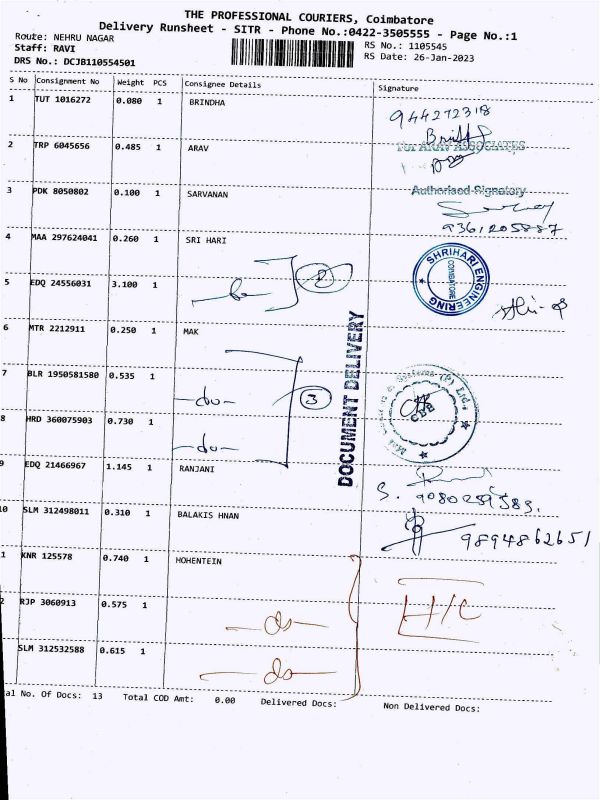 THE PROFESSIONAL COURIERS, Coimbatore
Delivery Runsheet - SITR - Phone No.:0422-3505555 - Page No.:1
Route: NEHRU NAGAR
Staff: RAVI
RS No.: 1105545
DRS No.: DCJB110554501
RS Date: 26-Jan-2023
S No Consignment No Weight PCS Consignee Details Signature
1 TUT 1016272 0.080 1 BRINDHA
944272318
2 TRP 6045656 0.485 1 ARAV
For ARAV ASSOCIATES
Authorised Signatory
3 PDK 8050802 0.100 1 SARVANAN
9361205887
4 MAA 297624041 0.260 1 SRI HARI
SHRIHARI ENGINEERING
COIMBATORE
5 EDQ 24556031 3.100 1
2
6 MTR 2212911 0.250 1 MAK
DOCUMENT DELIVERY
7 BLR 1950581580 0.535 1
-do-
3
8 HRD 360075903 0.730 1
-do-
Systems (P) Ltd.
CBE
9 EDQ 21466967 1.145 1 RANJANI
10 SLM 312498011 0.310 1 BALAKIS HNAN
9894862651
1 KNR 125578 0.740 1 HOHENTEIN
2 RJP 3060913 0.575 1
-do-
H/C
SLM 312532588 0.615 1
-do-
al No. Of Docs: 13 Total COD Amt: 0.00 Delivered Docs: Non Delivered Docs: